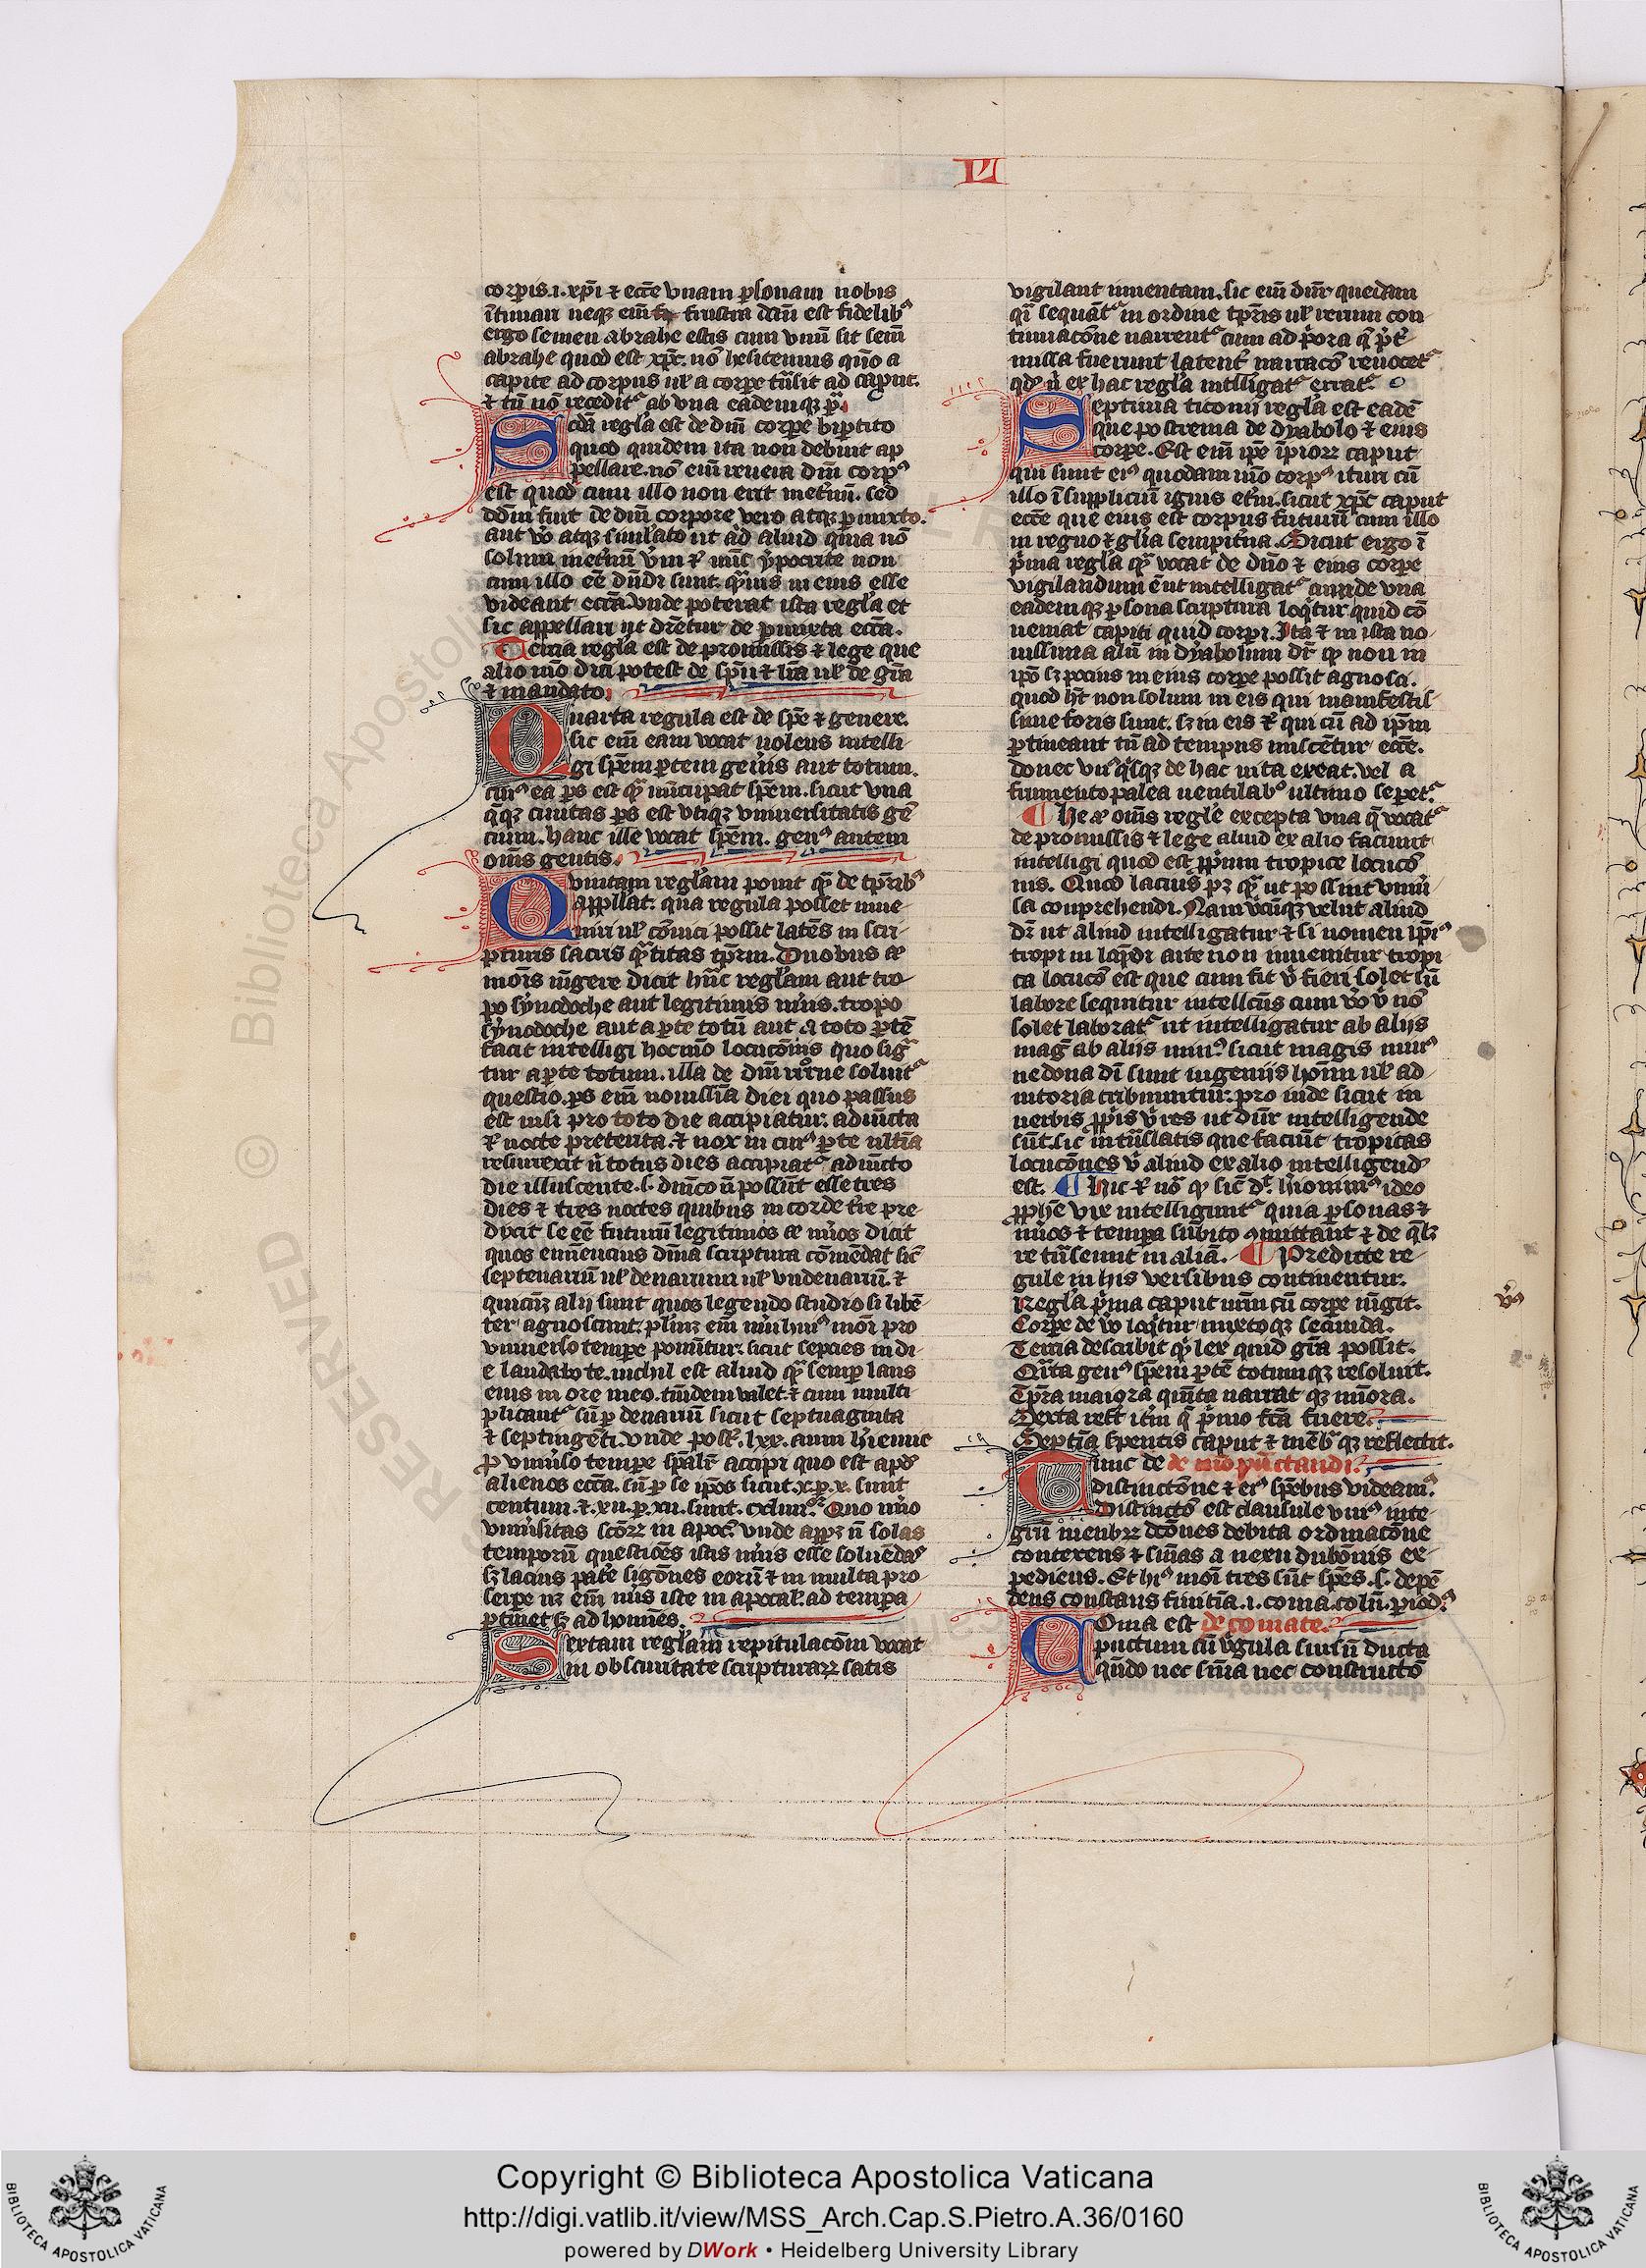 VI
corꝑis .i. xp̄i ⁊ ecc̄e vnam ꝑsonam nobis
ergo semen abrahe estis cum vnū sit semē
abrahe quod est xp̄c. nō hesitemus quō a
capite ad corpus ul̓ a corꝑe tn̄sit ad caput.
⁊ tn̄ nō recedit᷑ ab vna eademqꝫ ꝑª.
Scd̄a regl̓a est de dn̄i corꝑe biꝑtito
quod quidem ita non debuit ap
pellare. nō em̄ reuera dn̄i corpꝰ
est quod cum illo non erit
dictū fuit de dn̄i corpore vero atqꝫ ꝑmixto.
aut vo atqꝫ simulato ut ad aliud quia nō
cum illo eē dn̄di sunt
videant̓ ecc̄a. vnde poterat ista regl̓a et
sic appellari ut dr̄etur de ꝑmixta ecc̄a.
Tercia regl̓a est de promissis ⁊ lege que
alio mō dici potest de sp̄u ⁊ lr̄a ul̓ de gr̄a
⁊ mandato.
Quarta regula est de sp̄e ⁊ genere.
sic em̄ eam vocat uolens intelli-
gi sp̄em ꝑtem gen̄is aut totum.
cuiꝰ ea ꝑs est qª nūcupat sp̄em. sicut vna
q̄qꝫ ciuitas ꝑs est vtiqꝫ vniuersitatis gē
cium. hanc ille vocat sp̄em. genꝰ autem
om̄s gentis.
Quintam regl̓am ponit qª de tp̄ribꝰ
appllat. qua regula posset inue-
niri ul̓ cōnici possit latēs in scri-
pturis sacris qªtitas tp̄rm. Duobus āē
mōis vigere dicit hāc regl̓am aut tro-
po synodoche aut legitimis nūis. tropo
synodoche aut a ꝑte totū aut a toto ꝑtē
facit intelligi
tur a ꝑte totum. illa de dn̄i
questio. ꝑs em̄ nouissīa diei quo passus
est nisi pro toto die accipiatur. adiūcta
⁊ nocte pretenta. ⁊ nox in cuiꝰ ꝑte ultīa
resurrexit n̄ totus dies accipiat᷑ adiūcto
die illuscente .s. dn̄ico n̄ possūt esse tres
dies ⁊ tres noctes quibus in corde tr̄e pre-
dixit se eē futurū legitimos āē nūos dicit
quos eminencius diuīa scriptura cōmēdat sic̄
septenariū ul̓ denarium ul̓ vndenariū. ⁊
quicūqꝫ alij sunt quos legendo studiosi libē-
ter agnoscunt.
vniuerso tempe ponūtur. sicut sepcies in di-
e laudabo te. nichil est aliud qª semp̄ laus
eius in ore meo. tātundem valet. ⁊ cum multi-
plicant᷑
⁊ septingēti. vnde poss̄t .lxx. anni
alienos ecc̄a.
centum. ⁊ .xii. ꝑ .xii. sunt .cxliiii. Quo nūo
vniūsitas scōꝝ in apoc̄. vnde appꝫ n̄ solas
temporū questiōes istis nūis esse soluēdas
sꝫ lacius pate sigōnes eorū ⁊ in multa pro-
serꝑe nꝫ em̄ nūs iste in apocal̓. ad tempa
ꝑtinet sꝫ ad homines.
Sextam regl̓am repitulacōm vocat
in obscuritate scripturaꝝ satis
vigilant̓ inuentam. sic em̄ dn̄r quedam
qi sequāt᷑ in ordine tp̄ris ul̓ rerum con-
tinuacōne narrent᷑ cum ad p̓ora q̄
missa fuerunt latent̓ narracō reuocet᷑
qd̓ n̄ ex hac regl̓a intelligat᷑ errat᷑.
Septima ticonij regl̓a est eadē
que postrema de dyabolo ⁊ eius
corꝑe. Est em̄ ip̄e īpioꝝ caput
qui sunt eiꝰ quodam mō corpꝰ ituri cū
illo ī suppliciū ignis et̓ni. sicut xp̄c caput
ecc̄e que eius est corpus futurū cum illo
in regno ⁊ gl̓ia sempit̓na. Sicut ergo ī
p̓ma regl̓a qª vocat de dn̄o ⁊ eius corꝑe
vigilandum
eademqꝫ ꝑsona scriptura loqt̓ur quid cō
ueniat capiti quid corpi. Ita ⁊ in ista no-
uissima aliū in dyabolum dr̄ qꝫ non in
ip̄o sꝫ pocius in eius corꝑe possit agnosci.
quod hꝫ non solum in eis qui manifestis-
sime foris sunt. sꝫ in eis ⁊ qui cū ad ip̄m
ꝑtineant tn̄ ad tempus miscētur ecc̄e.
donec vnꝰqisqꝫ de hac uita exeat. vel a
frumento palea uentilabꝰ ultimo sepet᷑.
¶ He āē om̄s regl̓e excepta vna q̄ vocat᷑
de promissis ⁊ lege aliud ex alio faciunt
intelligi quod est ꝓprium tropice locucō
nis. Quod lacius pꝫ qª ut possint vniū
sa conprehendi. Nam vbicūqꝫ velut aliud
dr̄ ut aliud intelligatur ⁊ si nomen ip̄iꝰ
tropi in loq̄di arte non inuenitur tropi
ca locucō est que cum fit v̓ fieri solet sn̄
labore sequitur intellcūs cum vō v̓ nō
solet laborat᷑ ut intelligatur ab alijs
mag̓ ab alijs minꝰ. sicut magis minꝰ
ne dona dī sunt ingenijs hoīm ul̓ ad-
iutoria tribuuntur. pro inde sicut in
uerbis ꝓpriis v̓ res ut dn̄r intelligende
sūt. sic̄ in tn̄slatis que faciūt tropicas
locucōnes v̓ aliud ex alio intelligend̓
est. ¶ Hic ⁊ nō qꝫ sic̄ d᷑. hieronimꝰ ideo
ꝓphē vix intelligunt᷑ quia ꝑsonas ⁊
nūos ⁊ tempa subito ꝯmittant ⁊ de q̄lꝫ
re tn̄seunt in aliā. ¶ Predicte re-
gule in his versibus continentur.
Regl̓a p̓ma caput nr̄m cū corꝑe iūgit.
Corꝑe de vo loqt̓ur mixtoqꝫ secunda.
Tercia describit qi lex quid gr̄a possit.
Qªrta genꝰ sp̄em ꝑtē totumqꝫ resoluit.
Tp̄ra maiora quīta narrat qꝫ mīora.
Sexta refert̓ it̓m q̄ p̓mo fc̄a fuere.
Septīa serpentis caput ⁊ mēbªqꝫ reflectit.
Nunc de de mō pūctandi.
distinctōne ⁊ eiꝰ sp̄ebus videamꝰ.
Distinctō est clausule vniꝰ inte-
contexens ⁊ sn̄ias a nexu dubōnis ex-
pediens. Et hiꝰ mōi tres sūt sp̄es .s. depē
dens constans finitīa .i. coma. colū. ꝑiodꝰ
Coma est de comate.
punctum cū v̓gula sursū ducta
qn̄do nec sn̄ia nec constructō
© Biblioteca Apostolica
RESERVED
Copyright © Biblioteca Apostolica Vaticana
http://digi.vatlib.it/view/MSS_Arch.Cap.S.Pietro.A.36/0160
powered by DWork • Heidelberg University Library
BIBLIOTECA APOSTOLICA VATICANA
BIBLIOTECA APOSTOLICA VATICANA